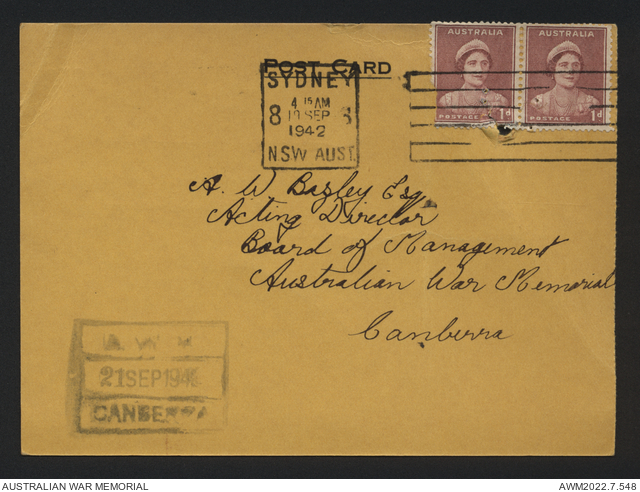 AUSTRALIA AUSTRALIA
POSTAGE 1d POSTAGE 1d
POST CARD
SYDNEY
4 15 AM
8 SEP 8
1942
NSW AUST.
A. W Bazley Esq
Acting Director
Board of Management
Australian War Memorial
Canberra
A. W. M
21 SEP 194
CANBERRA
AUSTRALIAN WAR MEMORIAL
AWM2022.7.548